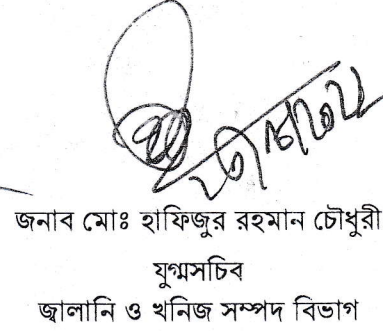 জনাব মোঃ হাফিজুর রহমান চৌধুরী
যুগ্মসচিব
জ্বালানি ও খনিজ সম্পদ বিভাগ